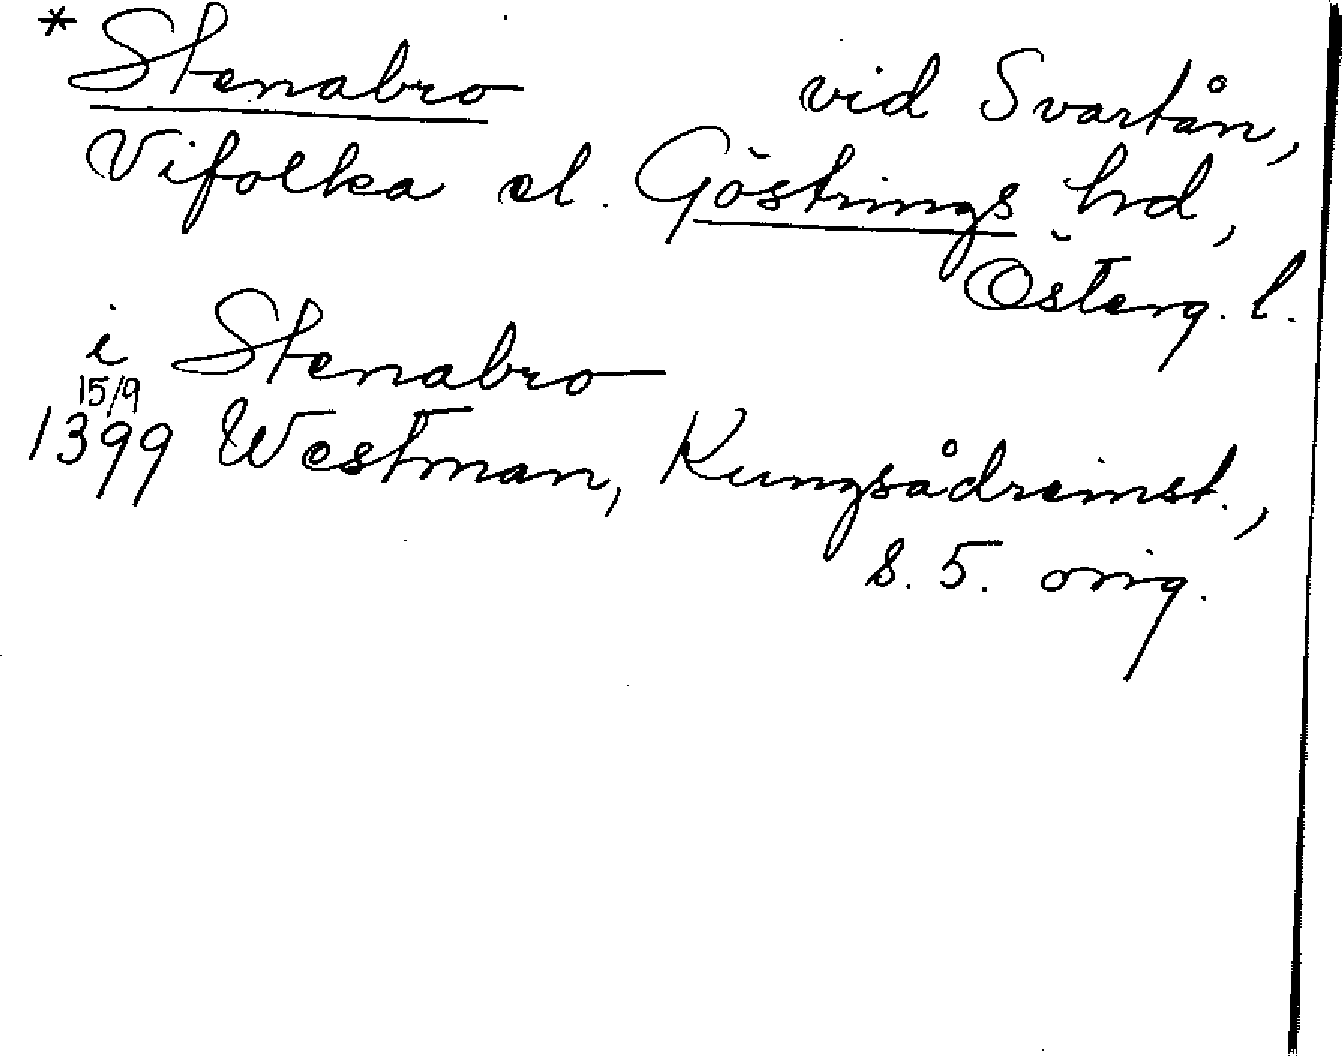 * Stenabro vid Svartån,
Vifolka el. Göstrings hrd,
Österg. l.
i Stenabro
15/9
1399 Westman, Kungsådreinst.,
s. 5. orig.